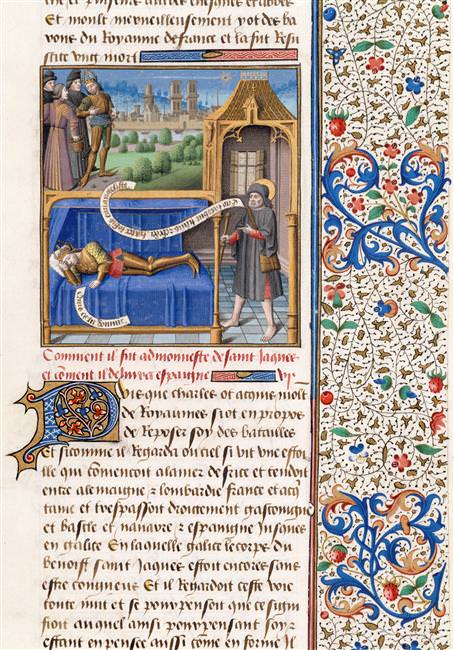 Et moult merveilleusement yot des ba
rons du Royaume de france et la fut Resu
scite ung mort
Comment il fut admoneste de saint Jaques
et coment il delivra espaigne vj
Puis que charles ot acquis molt
de Royaumes si ot en propos
de Reposer soy des batailles
Et si comme il Regarda ou ciel si vit une estoi
lle qui comencoit a la mer de frise et tendoit
entre alemaigne z lombardie france et acq
taine et trespassoit droitement gascoingne
et bascle et navarre z espaigne jusques
en galice En laquelle galice le corps du
benoist saint Jaques estoit encores sans
estre congneus Et il Regardoit ceste voie
toute nuit et se pourpensoit que ce signi
fioit auquel ainsi pourpensant soy z
estant en pensee aussi come en forme il